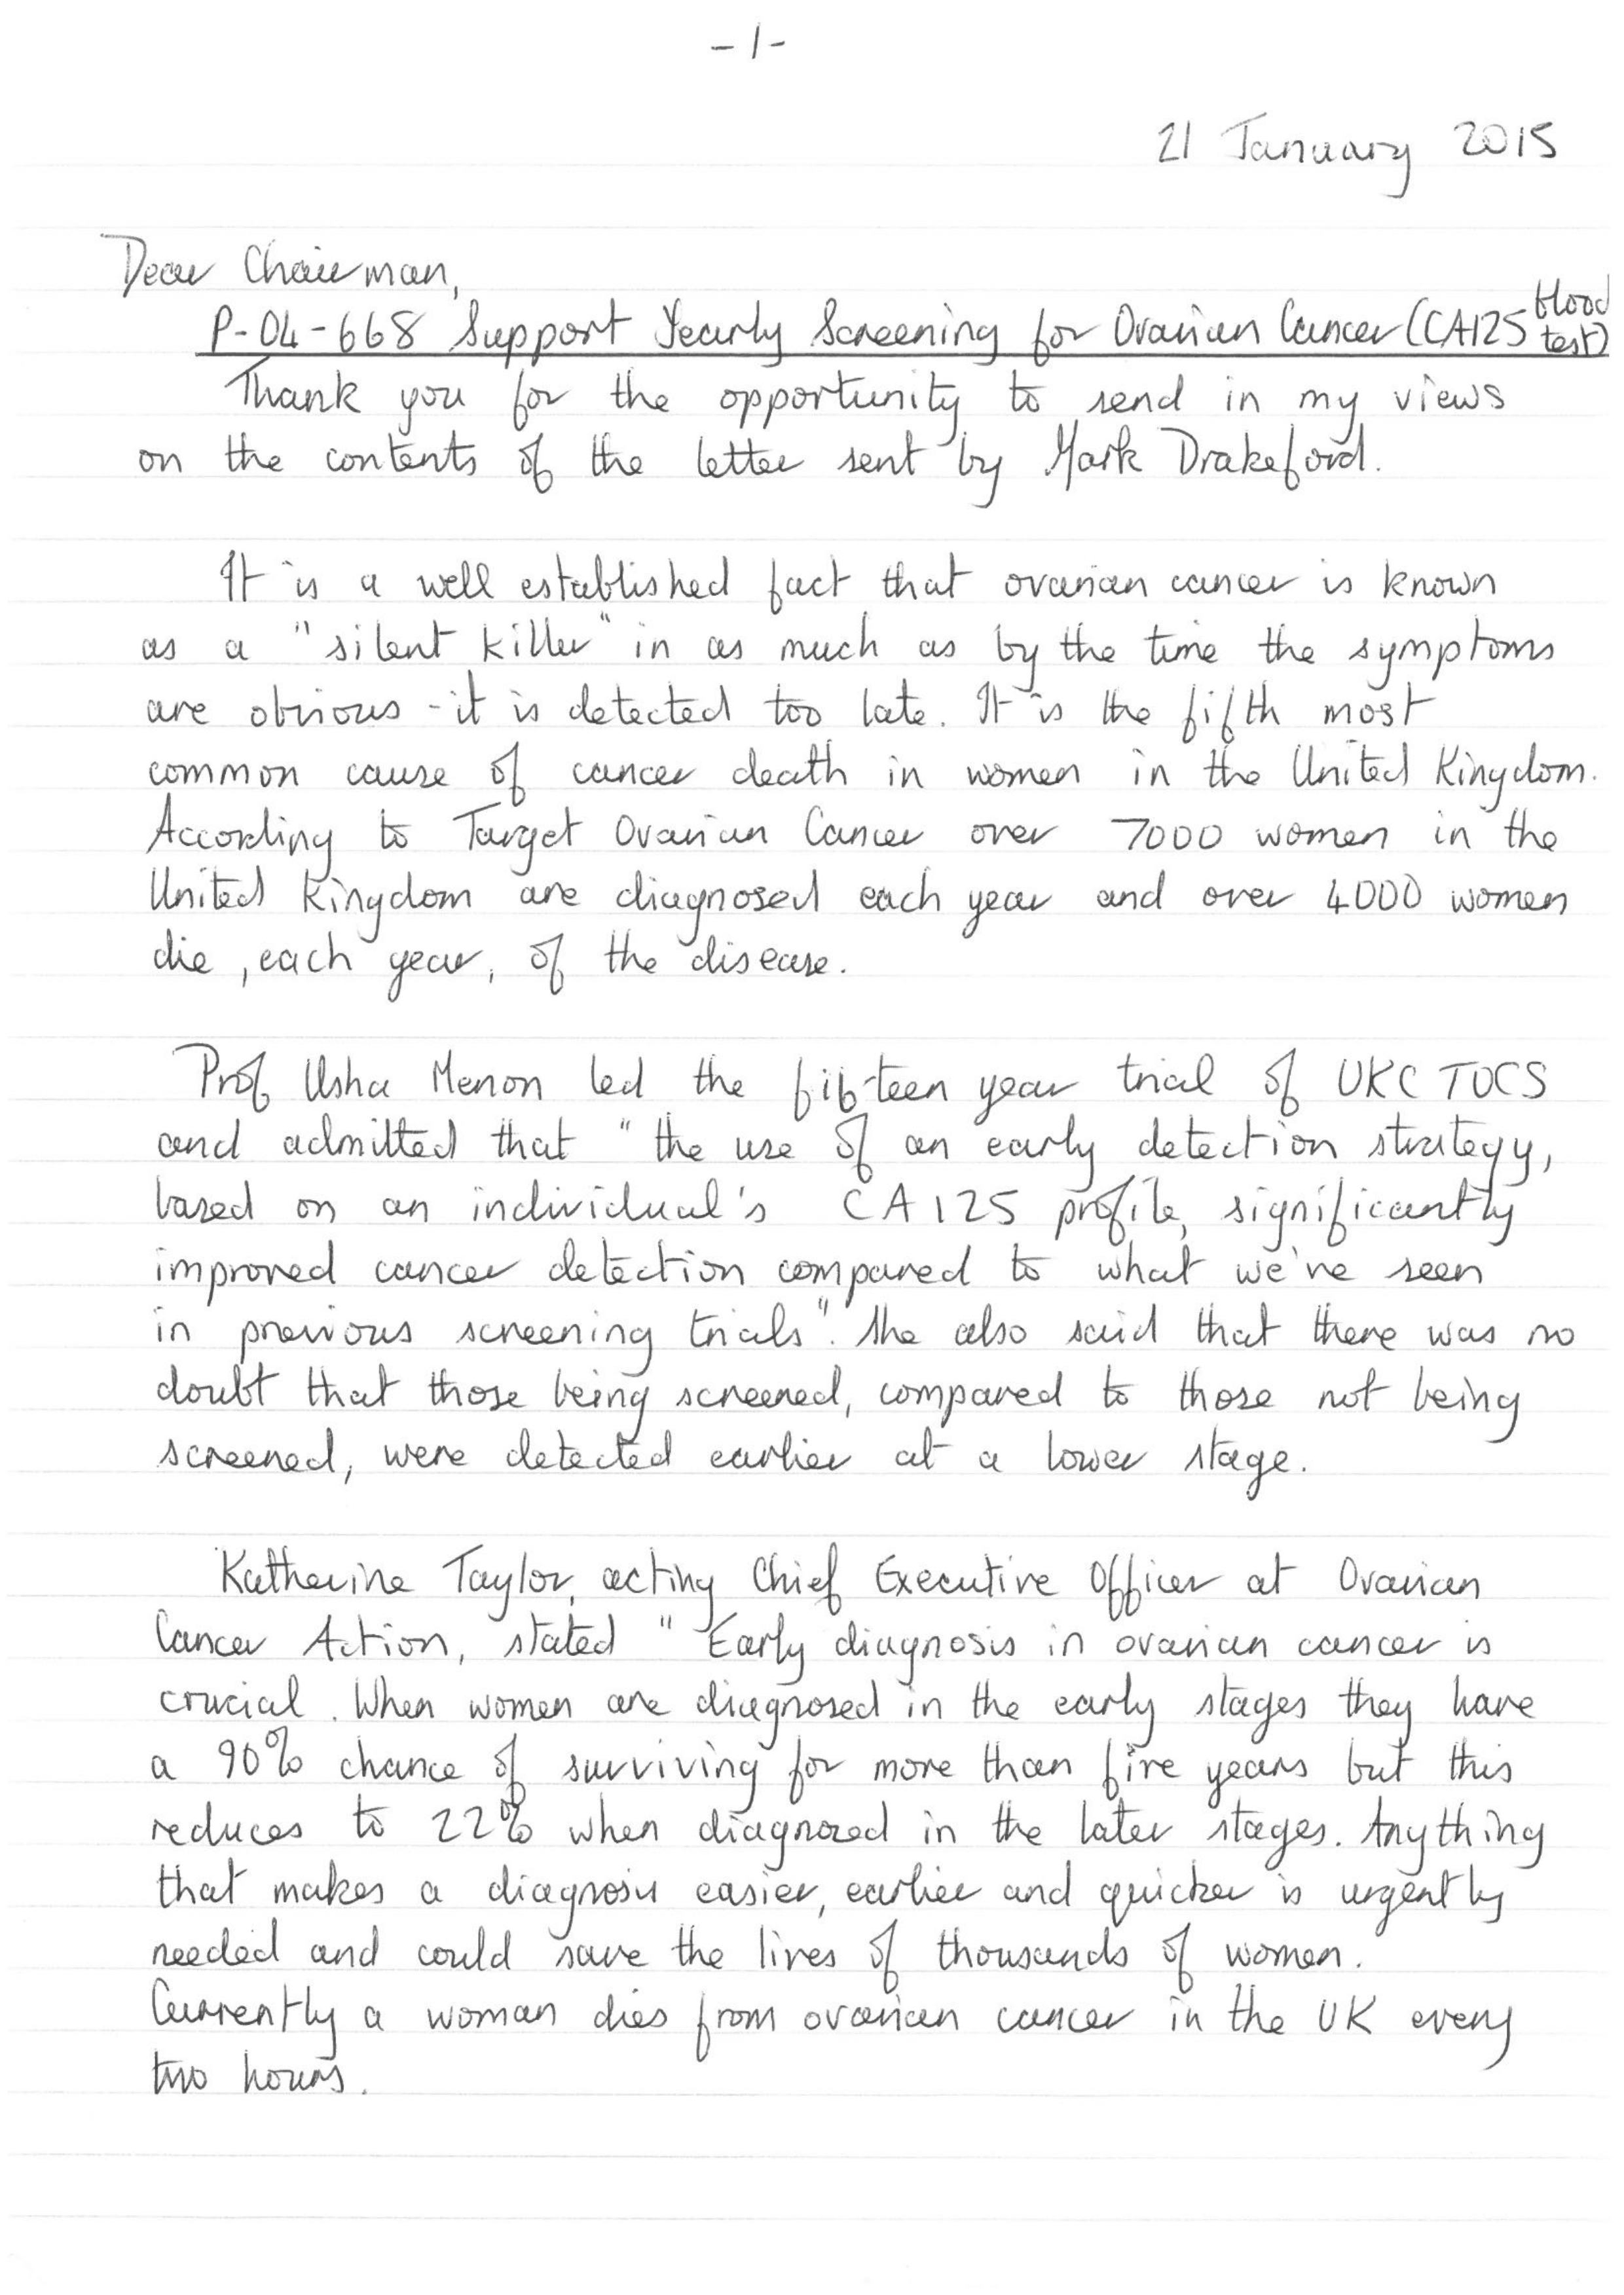 -1-
21 January 2015
Dear Chairman,
P-04-668 Support Yearly Screening for Ovarian Cancer (CA125 blood test)
Thank you for the opportunity to send in my views
on the contents of the letter sent by Mark Drakeford.
It is a well established fact that ovarian cancer is known
as a "silent killer" in as much as by the time the symptoms
are obvious - it is detected too late. It is the fifth most
common cause of cancer death in women in the United Kingdom.
According to Target Ovarian Cancer over 7000 women in the
United Kingdom are diagnosed each year and over 4000 women
die, each year, of the disease.
Prof Usha Menon led the fifteen year trial of UKCTOCS
and admitted that "the use of an early detection strategy,
based on an individual's CA125 profile, significantly
improved cancer detection compared to what we've seen
in previous screening trials". She also said that there was no
doubt that those being screened, compared to those not being
screened, were detected earlier at a lower stage.
Katherine Taylor, acting Chief Executive Officer at Ovarian
Cancer Action, stated "Early diagnosis in ovarian cancer is
crucial. When women are diagnosed in the early stages they have
a 90% chance of surviving for more than five years but this
reduces to 22% when diagnosed in the later stages. Anything
that makes a diagnosis easier, earlier and quicker is urgently
needed and could save the lives of thousands of women.
Currently a woman dies from ovarian cancer in the UK every
two hours.